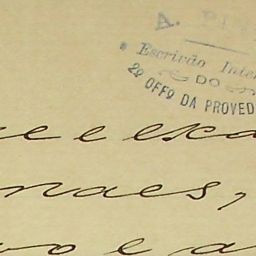 A. P
Escrivão Inte
DO
2º OFFº DA PROVED
e e exa
naes,
vo e a